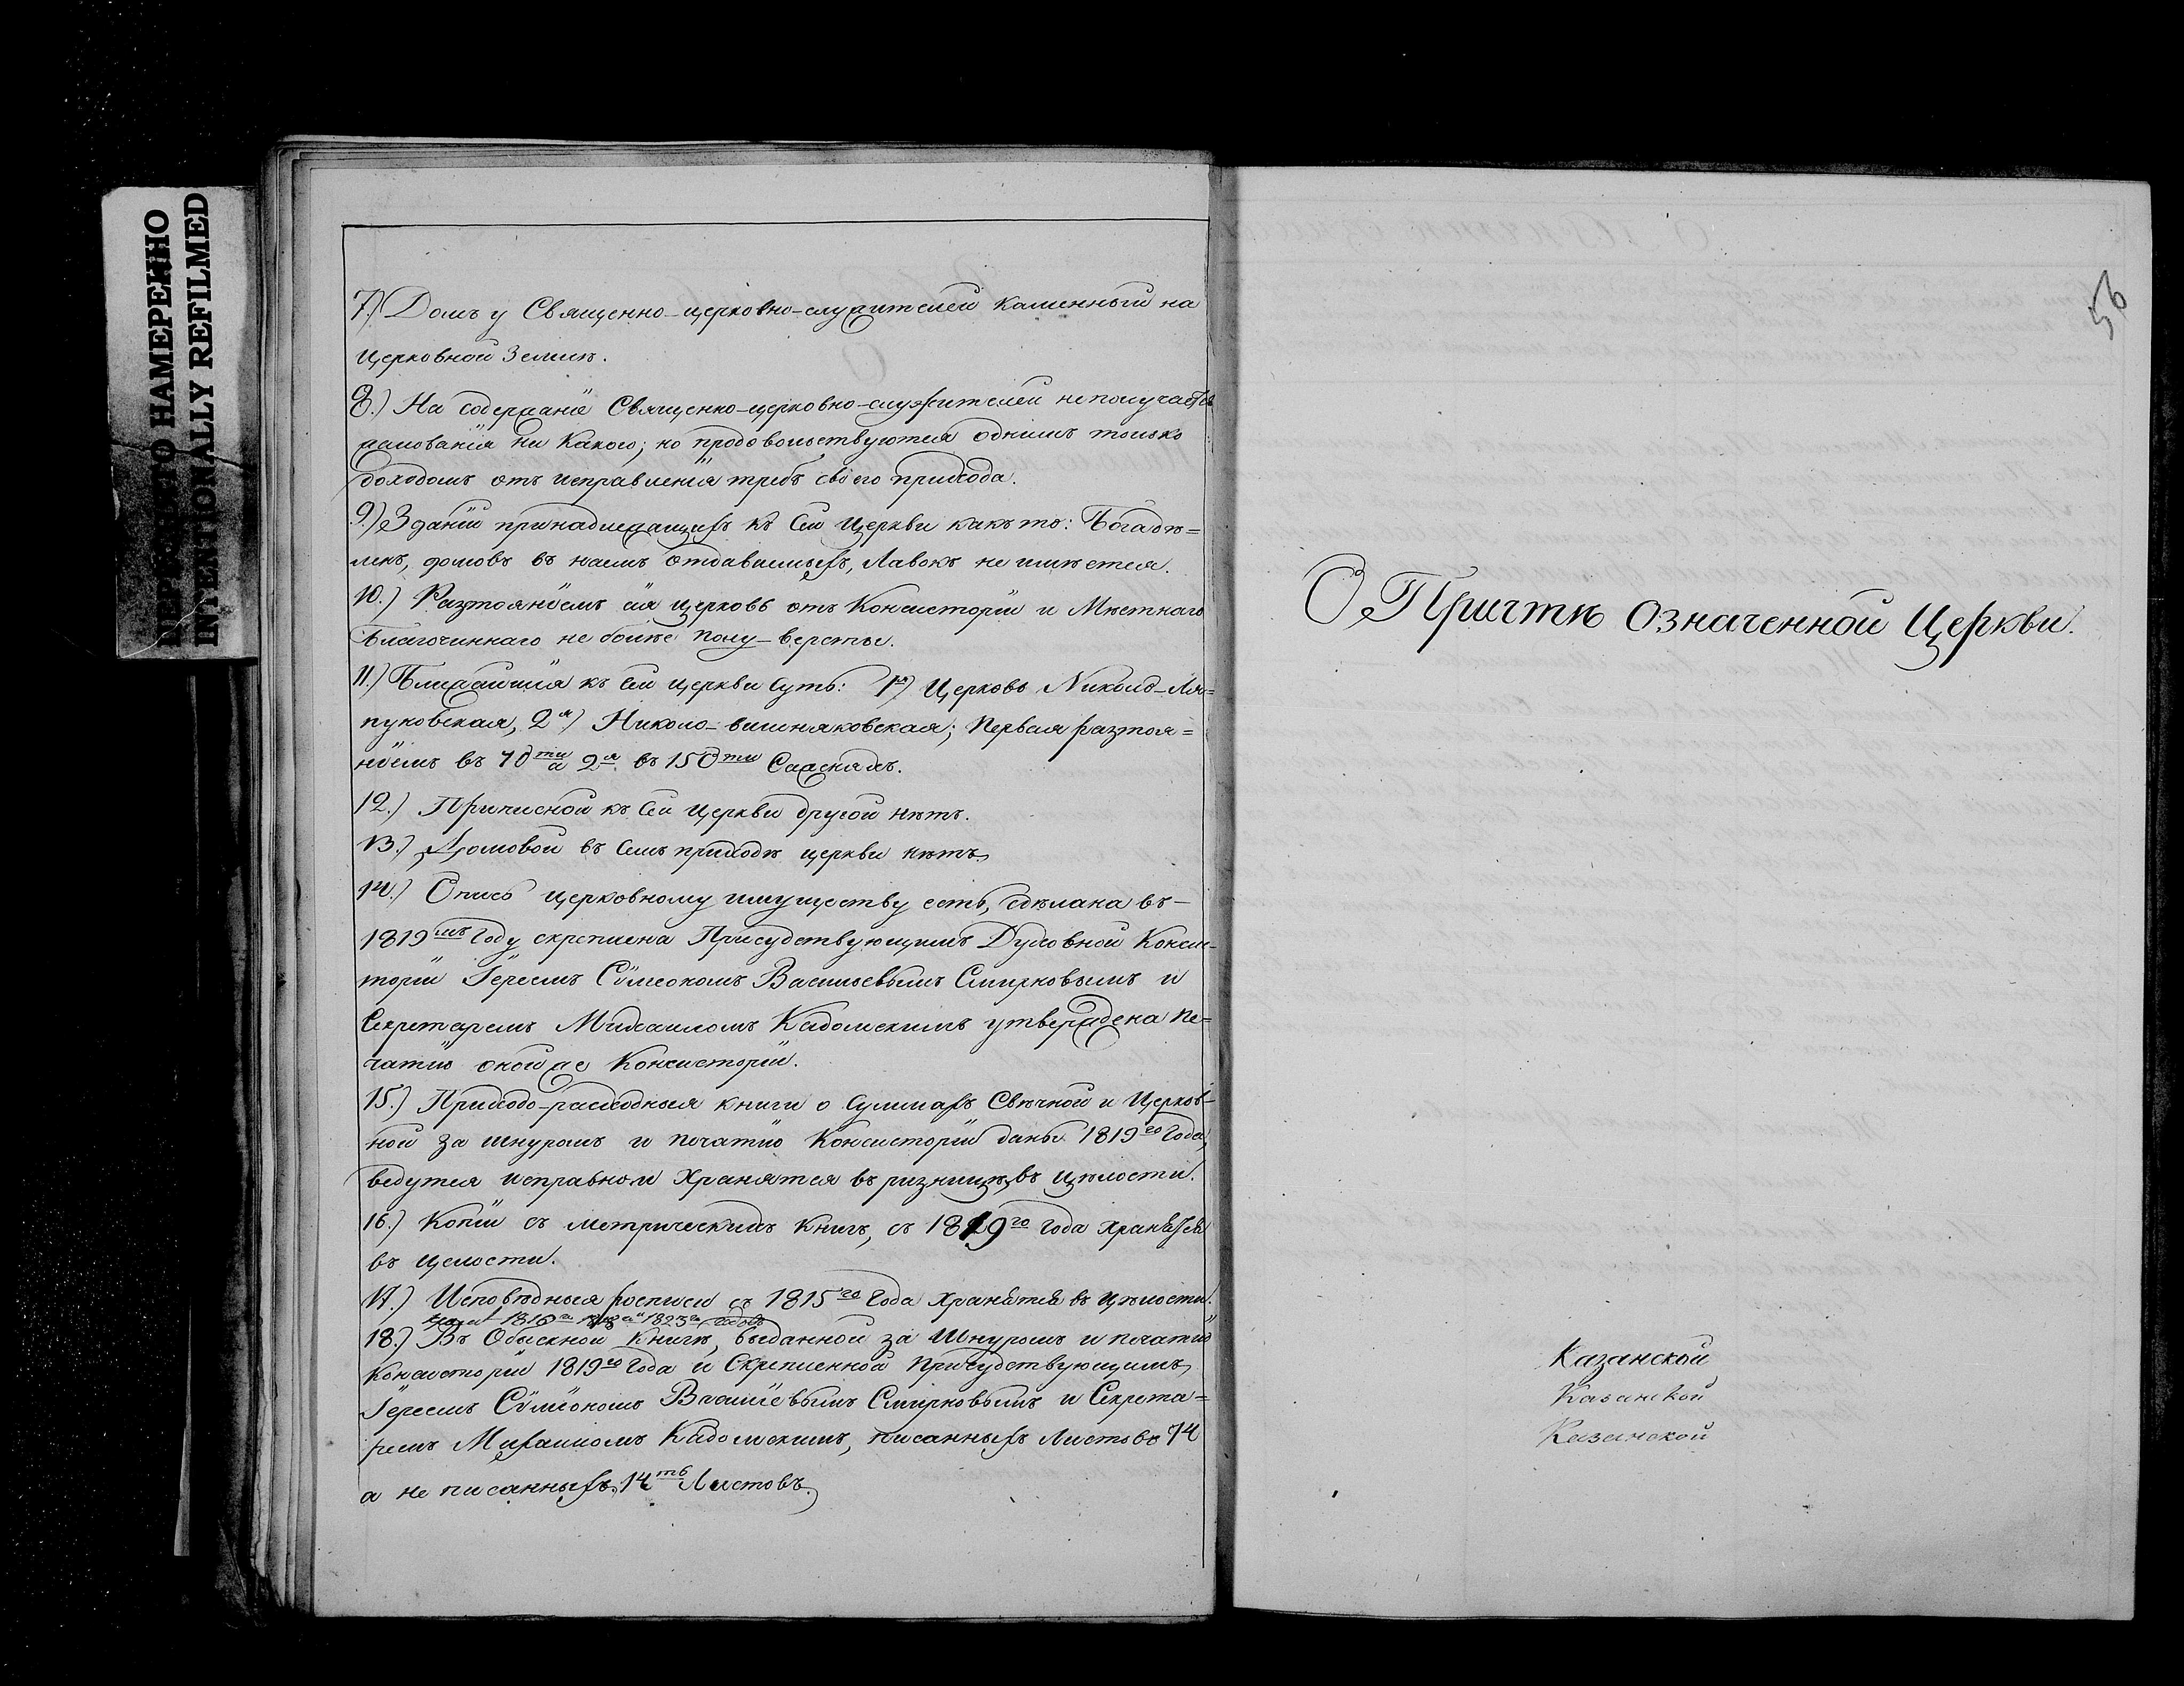 ПЕРЕСНЯТО НАМЕРЕННО
INTENTIONALLY REFILMED
7.) Домъ у Священно-церковно-служителей каменный на
церковной Землѣ.
8.) На содержанїе Священно-церковно-служителей не получается
жалованїя ни какого; но продовольствуются однимъ только
доходомъ отъ исправленїя требъ своего прихода.
9.) Зданїй принадлежащихъ къ Сей Церкви какъ то: Богадѣ=
ленъ, домовъ въ наемъ отдаваемыхъ, Лавокъ не имѣется.
10.) Разтоянїемъ сїя церковь отъ Консисторїи и Мѣстнаго
Благочиннаго не болѣе полу-версты.
11.) Ближайшїя къ Сей церкви Суть: 1я) Церковь Николо-
пуковская, 2я) Николо-вишняковская; Первая разтоя=
нїемъ въ 70ти а 2я въ 150ти Саженяхъ.
12.) Приписной къ Сей Церкви другой нѣтъ.
13.) Домовой въ Семъ приходѣ церкви нѣтъ.
14.) Опись церковному имуществу есть, сдѣлана въ-
1819мъ Году скрѣплена Присудствующимъ Духовной Конси-
торїи Їереемъ Сѵмеономъ Васильевымъ Смирновымъ и
Секретаремъ Михаиломъ Кадомскимъ утверждена пе=
чатїю оной же Консисторїи.
15.) Приходо-расходныя книги о Суммахъ Свѣчной и Церков-
ной за шнуромъ и печатїю Консисторїи даны 1819го Года,
ведутся исправно и хранятся въ ризницѣ въ цѣлости.
16.) Копїи съ метрическихъ книгъ, съ 1819го года хранятся
въ целости.
17.) Исповѣдныя росписи съ 1815го Года хранятся въ цѣлости.
1816го 1823го годовъ
18.) Въ Обыскной книгѣ, выданной за Шнуромъ и печатїю
Консисторїи 1819го Года и Скрѣпленной Присудствующимъ
Їереемъ Сѵмеономъ Васильевымъ Смирновымъ и Секрета=
ремъ Михаиломъ Кадомскимъ, писанныхъ Листовъ 74
а не писанныхъ 14ть Листовъ.
56
О Причтѣ означенной Церкви.
Казанской
Казанской
Казанской